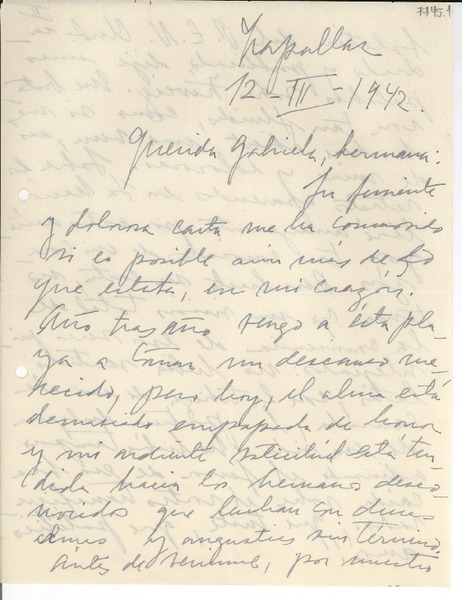 Zapallar
12-III-1942.
Querida Gabriela, hermana:
Tu ferviente
y dolorosa carta me ha conmovido
si es posible aún más de lo
que estaba, en mi corazón.
Año tras año vengo a esta pla-
ya a tomar un descanso me-
recido, pero hoy, el alma está
demasiado empapada de horror
y mi ardiente solicitud está ten-
dida hacia los hermanos desco-
nocidos que luchan con
y angustias sin término.
Antes de venirme, por nuestro